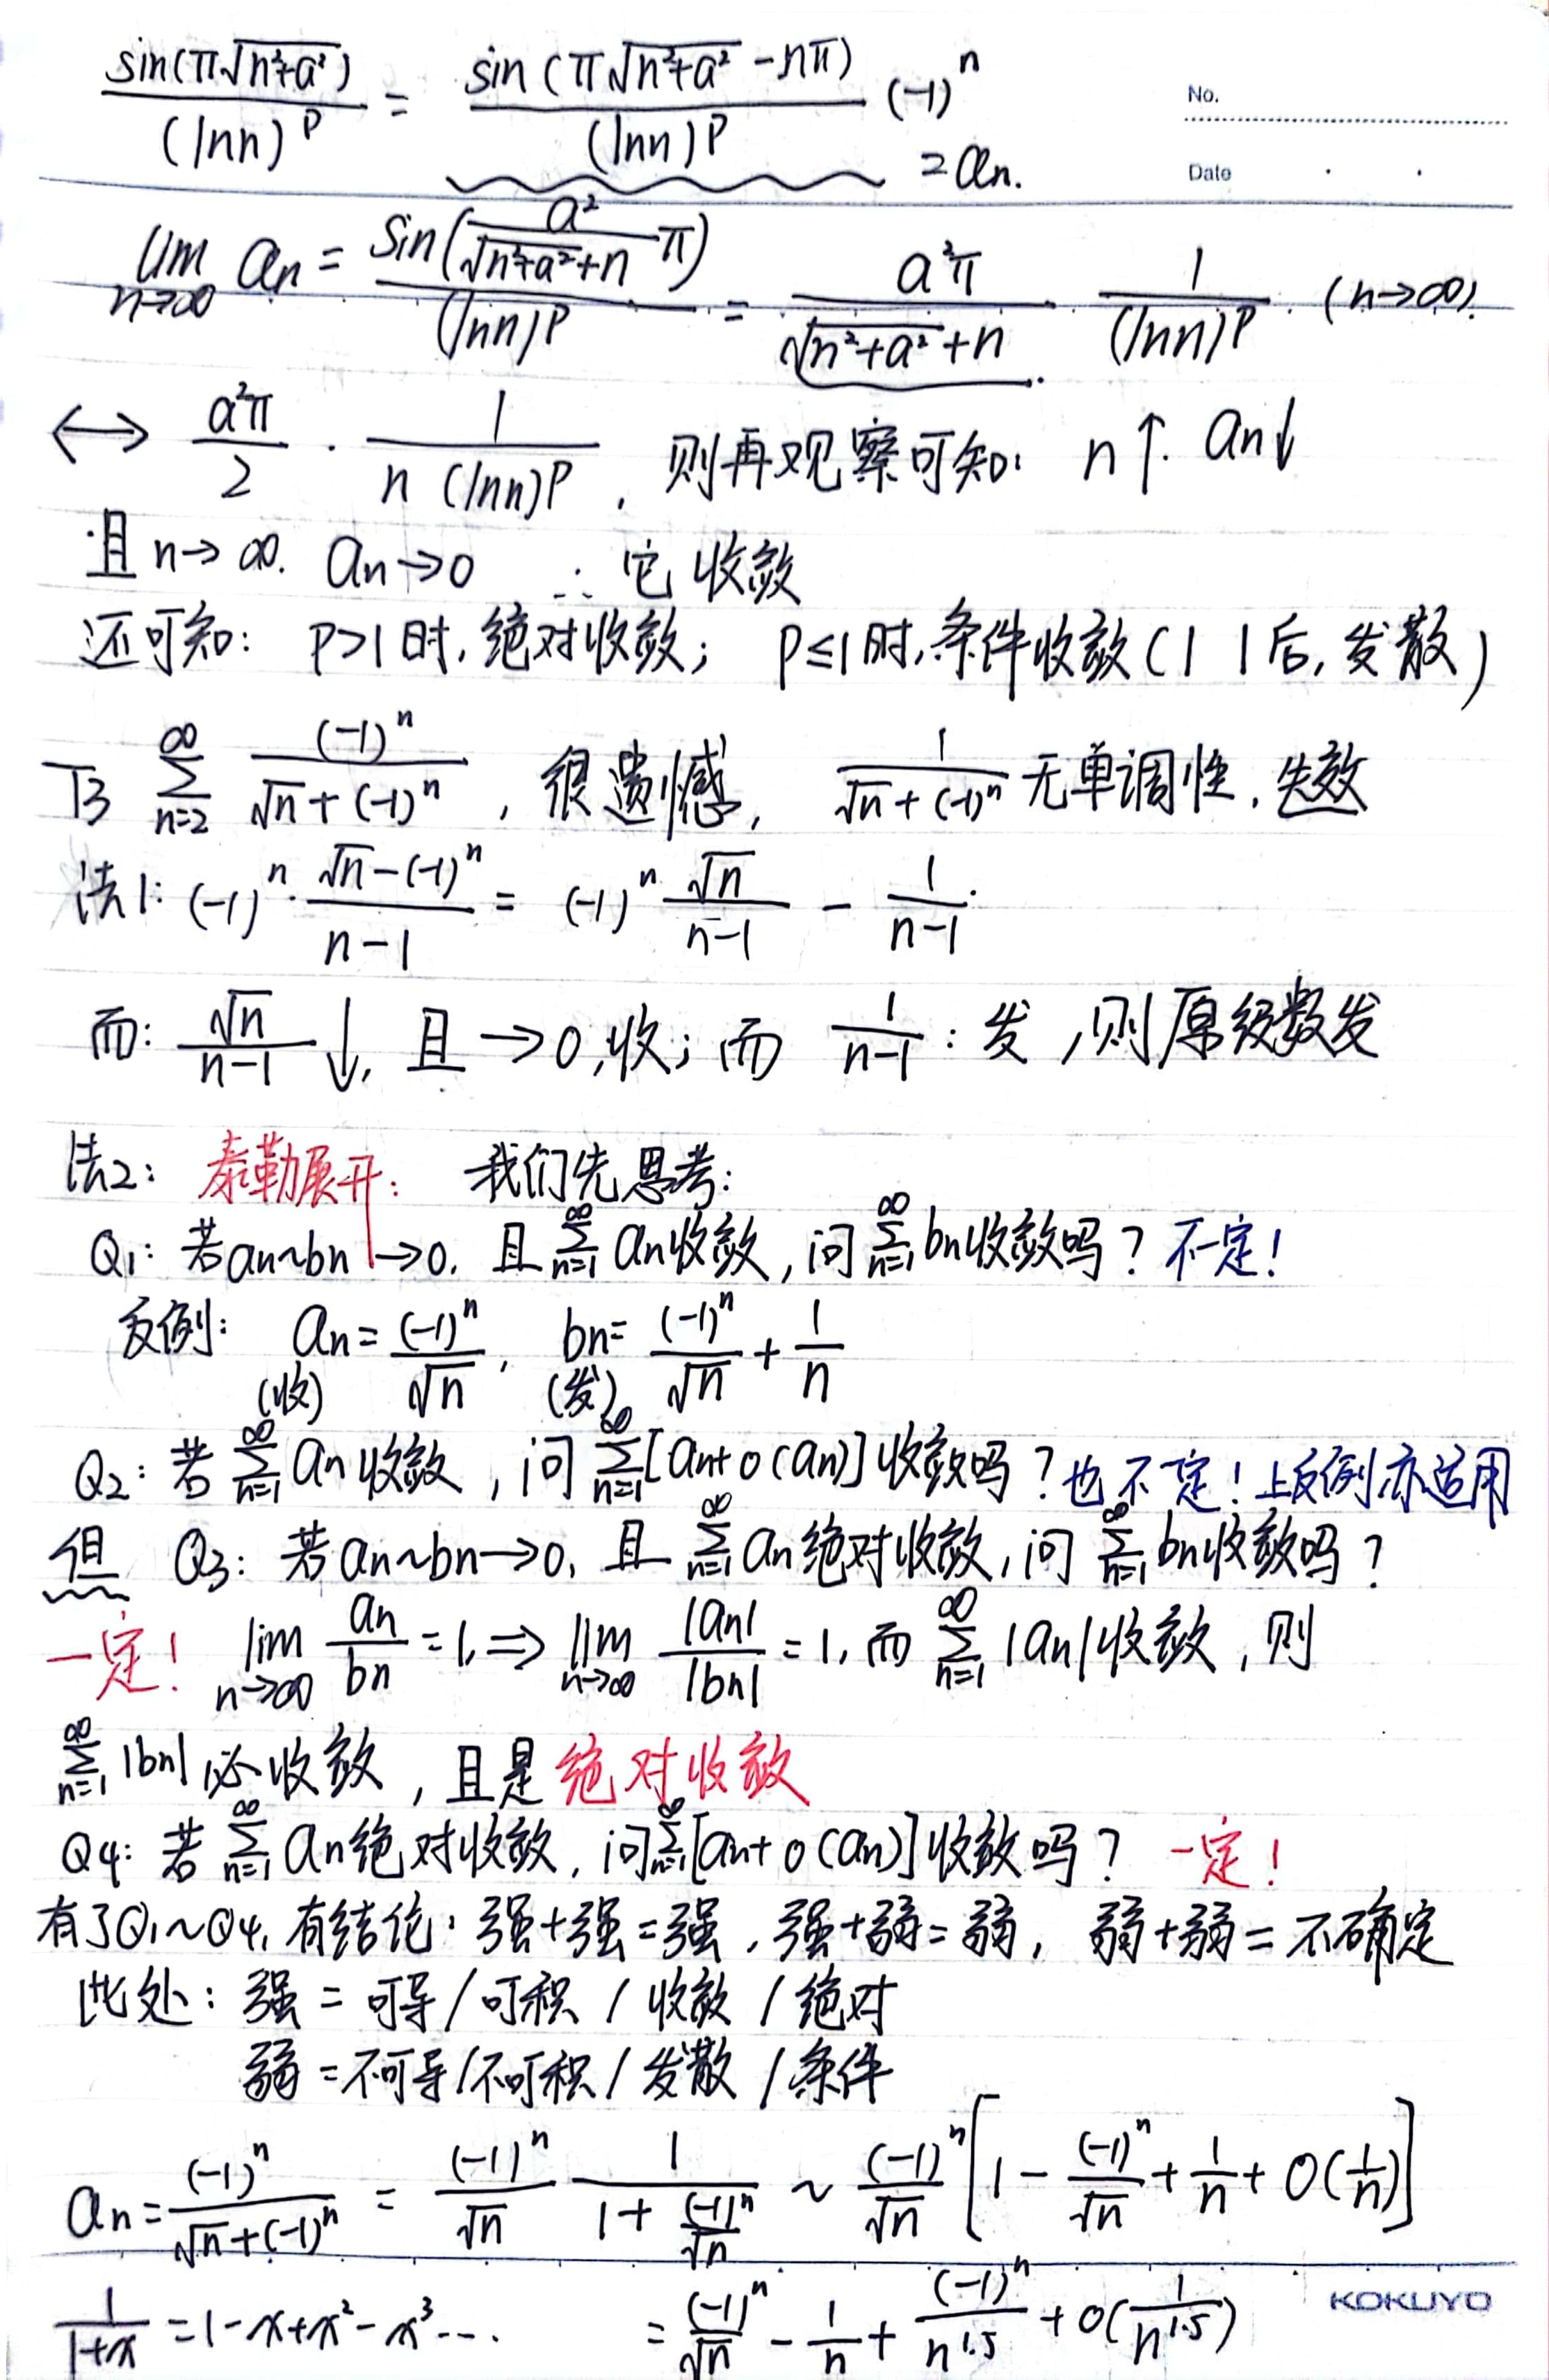 sin(π√(n²+a²))/(lnn)^p = sin(π√(n²+a²) -nπ)/(lnn)^p (-1)^n
No.
=an.
Date
lim n→∞ an = sin(a²/(√(n²+a²)+n) π)/(lnn)^p = a²π/(√(n²+a²)+n) · 1/(lnn)^p. (n→∞).
↔ a²π/2 · 1/(n (lnn)^p), 则再观察可知: n↑. an↓
且 n→∞. an→0 ∴它收敛
还可知: P>1时, 绝对收敛; P≤1时,条件收敛(| |后,发散)
T3 ∑_{n=2}^∞ (-1)^n/(√n+(-1)^n), 很遗憾, 1/(√n+(-1)^n) 无单调性, 失效
法1: (-1)^n · (√n-(-1)^n)/(n-1) = (-1)^n √n/(n-1) - 1/(n-1).
而: √n/(n-1) ↓, 且→0,收; 而 1/(n-1): 发,则原级数发
法2: 泰勒展开: 我们先思考:
Q1: 若an~bn→0. 且∑_{n=1}^∞ an收敛,问∑_{n=1}^∞ bn收敛吗? 不一定!
反例: an=(-1)^n/√n, bn=(-1)^n/√n + 1/n
(收) (发)
Q2: 若∑_{n=1}^∞ an收敛,问∑_{n=1}^∞[an+o(an)]收敛吗?也不一定!上反例亦适用
但 Q3: 若an~bn→0, 且∑_{n=1}^∞ an绝对收敛,问∑_{n=1}^∞ bn收敛吗?
一定! lim n→∞ an/bn=1,⇒ lim n→∞ |an|/|bn|=1,而∑_{n=1}^∞ |an|收敛,则
∑_{n=1}^∞ |bn|必收敛,且是绝对收敛
Q4: 若∑_{n=1}^∞ an绝对收敛,问∑_{n=1}^∞[an+o(an)]收敛吗? 一定!
有了Q1~Q4,有结论: 强+强=强,强+弱=弱, 弱+弱=不确定
此处: 强=可导/可积/收敛/绝对
弱=不可导/不可积/发散/条件
an=(-1)^n/(√n+(-1)^n) = (-1)^n/√n · 1/(1+(-1)^n/√n) ~ (-1)^n/√n [1-(-1)^n/√n+1/n+o(1/n)]
1/(1+x)=1-x+x²-x³---. = (-1)^n/√n - 1/n + (-1)^n/n^1.5 + o(1/n^1.5)
KOKUYO